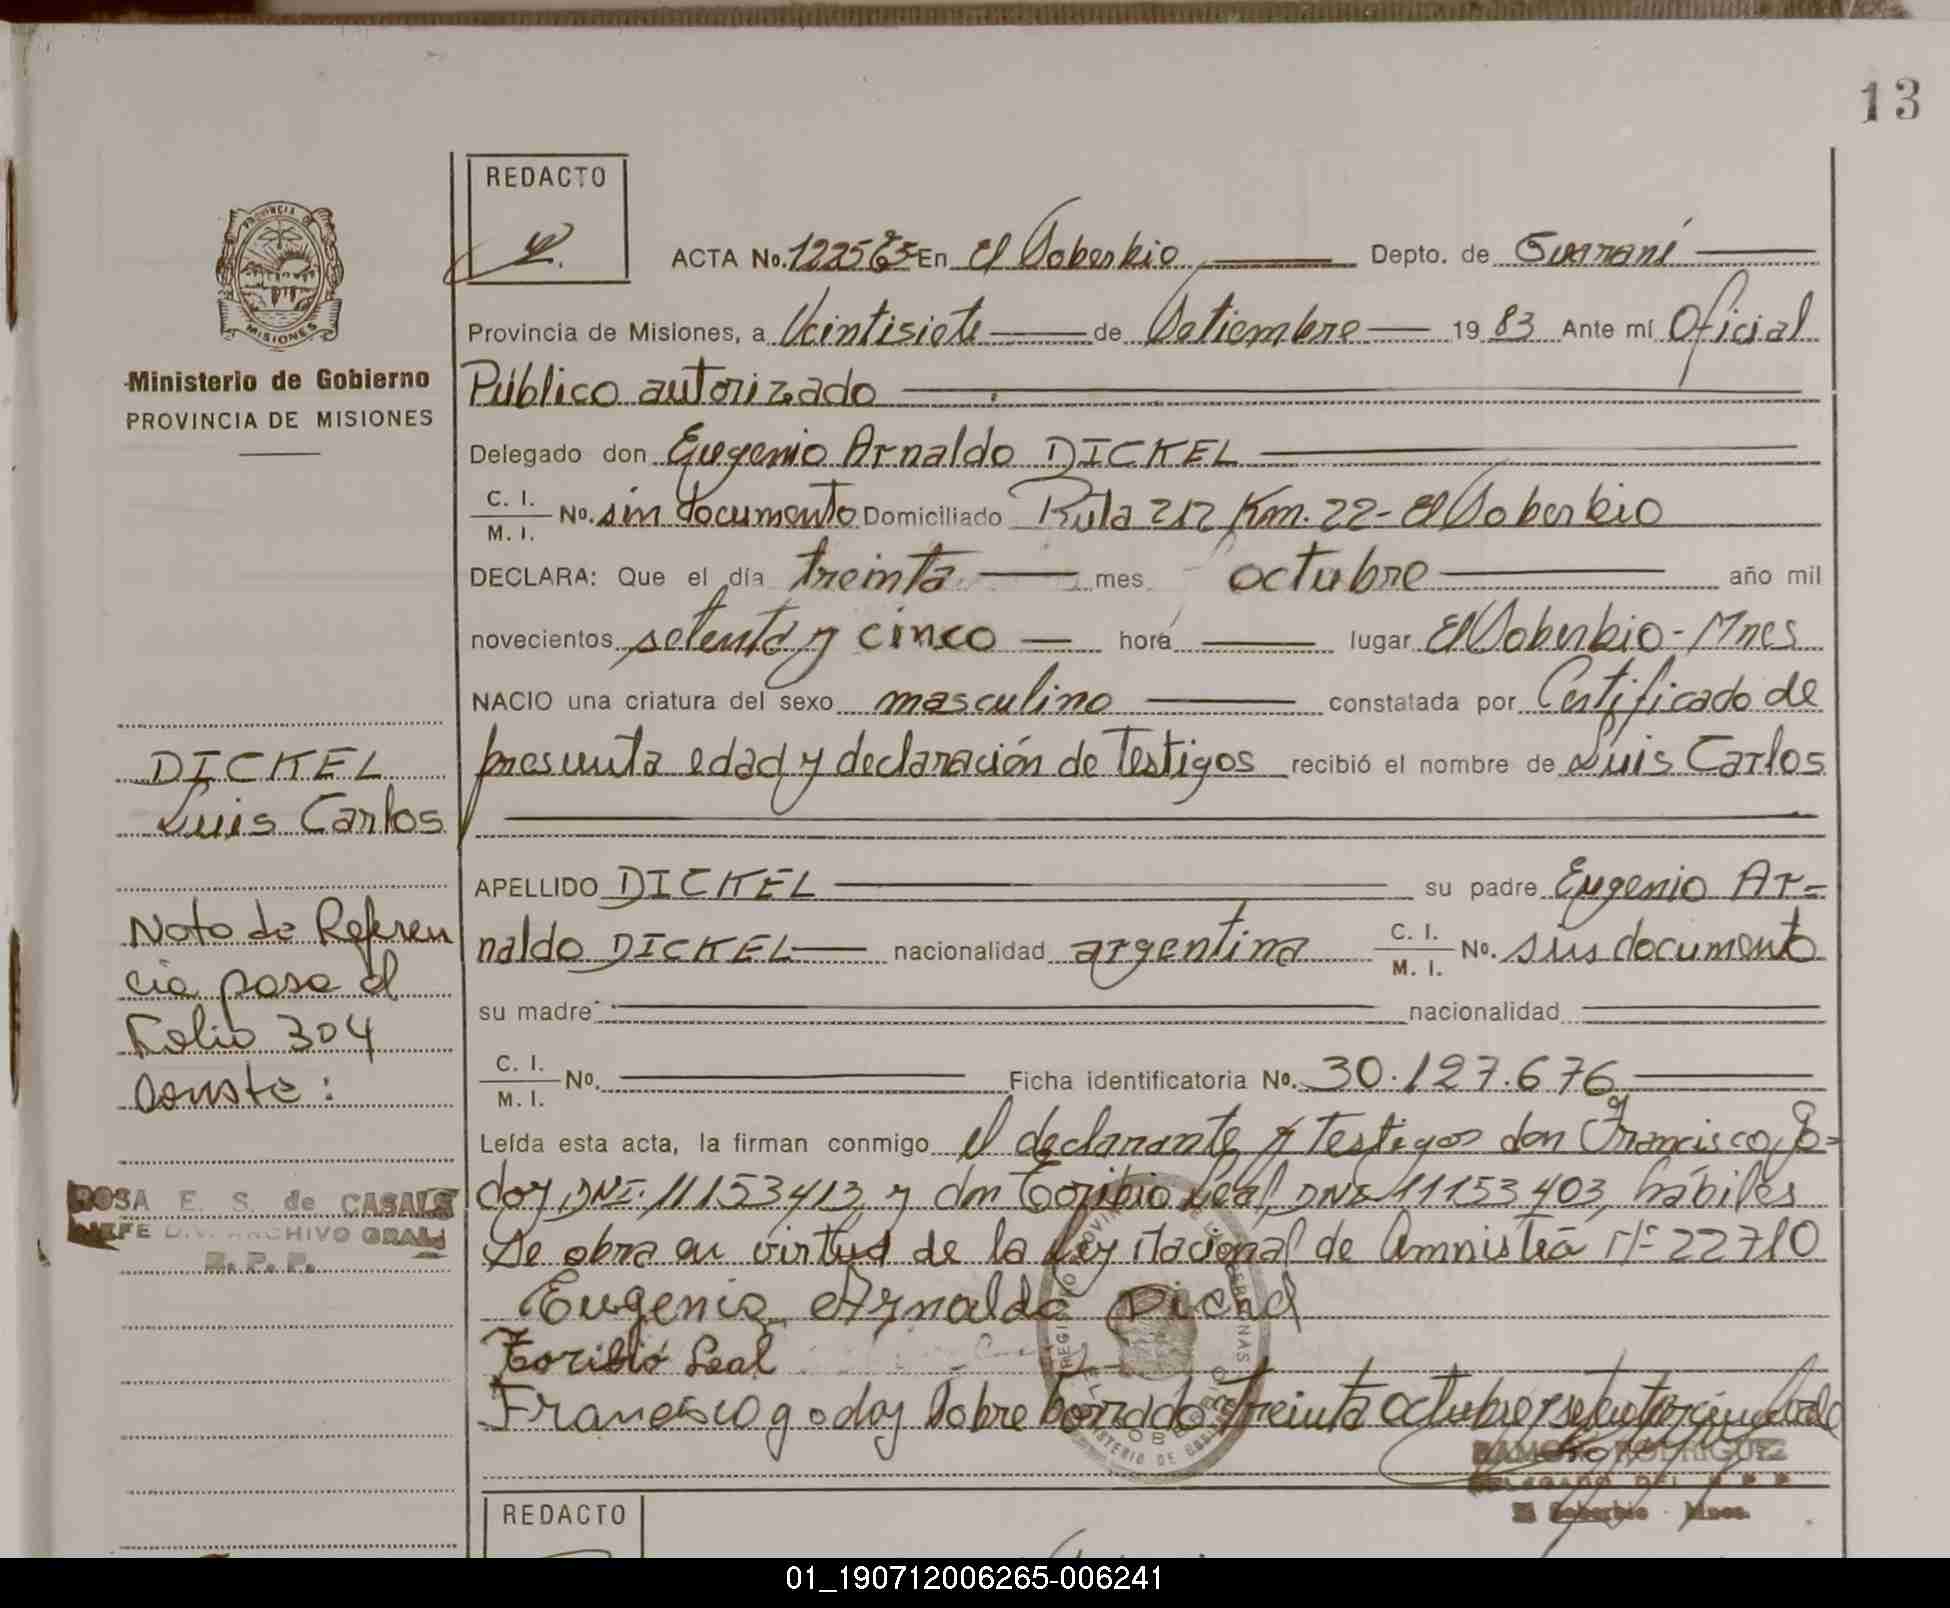 13
REDACTO
ACTA No. En El Soberbio Depto. de Guaraní
PROVINCIA DE
MISIONES
Provincia de Misiones, a Veintisiete de Setiembre 1983 Ante mí Oficial
Ministerio de Gobierno
PROVINCIA DE MISIONES
Público autorizado
Delegado don Eugenio Arnaldo DICKEL
C. I.
M. I. No. sin documento Domiciliado Ruta 212 Km. 22 - El Soberbio
DECLARA: Que el día treinta mes octubre año mil
novecientos setenta y cinco hora lugar El Soberbio - Mnes
NACIO una criatura del sexo masculino constatada por Certificado de
presunta edad y declaración de Testigos recibió el nombre de Luis Carlos
DICKEL
Luis Carlos
APELLIDO DICKEL su padre Eugenio Ar=
naldo DICKEL nacionalidad argentina C. I.
M. I. No. sin documento
su madre nacionalidad
Nota de Referen
cia pasa al
Folio 304
Conste:
C. I.
M. I. No. Ficha identificatoria No. 30.127.676
Leída esta acta, la firman conmigo el declarante y Testigos don Francisco Go=
doy DNI. 11153413, y don Toribio Leal, DNI 11153403, hábiles
Se obra en virtud de la Ley Nacional de Amnistía Nº 22710
ROSA E. S. de CASALS
JEFE DIV. ARCHIVO GRAL.
R. P. P.
Eugenio Arnaldo
Toribio Leal
Francisco godoy Sobre borrado treinta octubre setenta y cinco Vale
RAMON RODRIGUEZ
DELEGADO DEL R P P
El Soberbio - Mnes.
REDACTO
01_190712006265-006241